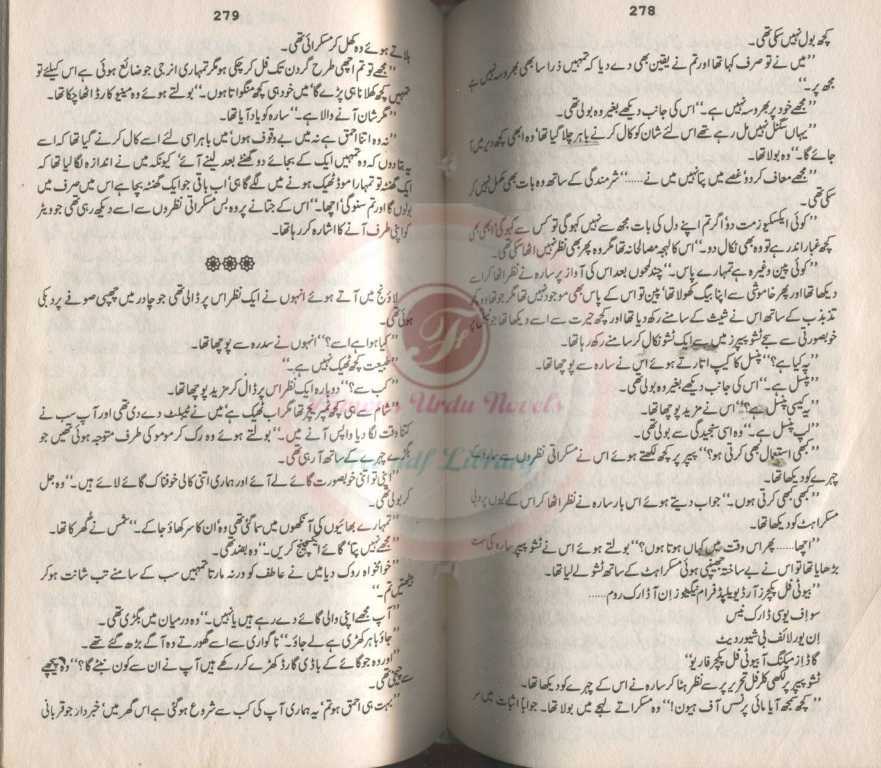 278
کچھ بول نہیں سکی تھی۔
’’میں نے تو صرف کہا تھا اور تم نے یقین بھی دے دیا کہ تمہیں ذرا سا بھی بھروسہ نہیں ہے
مجھ پر۔‘‘
’’مجھے خود پر بھروسہ نہیں ہے۔‘‘ اس کی جانب دیکھے بغیر وہ بولی تھی۔
’’یہاں سگنل نہیں مل رہے تھے اس لئے شان کو کال کرنے باہر چلا گیا تھا‘ وہ ابھی کچھ دیر میں آ
جائے گا۔‘‘ وہ بولا تھا۔
’’مجھے معاف کر دو‘ غصے میں پتا نہیں میں نے......‘‘ شرمندگی کے ساتھ وہ بات بھی مکمل نہیں کر
سکی تھی۔
’’کوئی ایکسکیوز مت دو‘ اگر تم اپنے دل کی بات مجھ سے نہیں کہو گی تو کس سے کہو گی‘ ابھی بھی
کچھ غبار اندر ہے تو وہ بھی نکال دو۔‘‘ اس کا لہجہ مصالحانہ تھا مگر وہ پھر بھی نظر نہیں اٹھا سکی تھی۔
’’کوئی پین وغیرہ ہے تمہارے پاس۔‘‘ چند لمحوں بعد اس کی آواز پر سارہ نے نظر اٹھا کر اسے
دیکھا تھا اور پھر خاموشی سے اپنا بیگ کھولا تھا‘ پین تو اس کے پاس بھی موجود نہیں تھا مگر جو تھا وہ کچھ
تذبذب کے ساتھ اس نے شیث کے سامنے رکھ دیا تھا اور کچھ حیرت سے اسے دیکھا تھا جو
خوبصورتی سے سجے ٹشو پیپرز میں سے ایک ٹشو نکال کر سامنے رکھ رہا تھا۔
’’یہ کیا ہے؟‘‘ پنسل کا کیپ اتارتے ہوئے اس نے سارہ سے پوچھا تھا۔
’’پنسل ہے۔‘‘ اس کی جانب دیکھے بغیر وہ بولی تھی۔
’’یہ کیسی پنسل ہے؟‘‘ اس نے مزید پوچھا تھا۔
’’لپ پنسل ہے۔‘‘ وہ اسی سنجیدگی سے بولی تھی۔
’’کبھی استعمال بھی کرتی ہو؟‘‘ پیپر پر کچھ لکھتے ہوئے اس نے مسکراتی نظروں سے سارہ کے
چہرے کو دیکھا تھا۔
’’کبھی کبھی کرتی ہوں۔‘‘ جواب دیتے ہوئے اس بار سارہ نے نظر اٹھا کر اس کے لبوں پر دبی
مسکراہٹ کو دیکھا تھا۔
’’اچھا...... پھر اس وقت میں کہاں ہوتا ہوں؟‘‘ بولتے ہوئے اس نے ٹشو پیپر سارہ کی سمت
بڑھایا تھا تو اس نے بے ساختہ جھینپی ہوئی مسکراہٹ کے ساتھ ٹشو لے لیا تھا۔
’’بیوٹی فل پکچرز آر ڈیویلپڈ فرام نیگیٹوز ان آ ڈارک روم......
سو اف یو سی ڈارک نیس
ان یور لائف بی شیور دیٹ
گاڈ از میکنگ آ بیوٹی فل پکچر فار یو‘‘
ٹشو پیپر پر لکھی کلر فل تحریر پر سے نظر ہٹا کر سارہ نے اس کے چہرے کو دیکھا تھا۔
’’کچھ سمجھ آیا مائی پرنسس آف ہیون!‘‘ وہ مسکراتے لہجے میں بولا تھا۔ جواباً اثبات میں سر
279
ہلاتے ہوئے وہ کھل کر مسکرائی تھی۔
’’مجھے تو تم اچھی طرح گردن تک فل کر چکی ہو مگر تمہاری انرجی جو ضائع ہوئی ہے اس کیلئے تو
تمہیں کچھ کھلانا ہی پڑے گا‘ میں خود ہی کچھ منگواتا ہوں۔‘‘ بولتے ہوئے وہ مینیو کارڈ اٹھا چکا تھا۔
’’مگر شان آنے والا ہے۔‘‘ سارہ کو یاد آیا تھا۔
’’نہ وہ اتنا احمق ہے نہ میں بے وقوف ہوں‘ میں باہر اسی لئے اسے کال کرنے گیا تھا کہ اسے
یہ بتا دوں کہ وہ تمہیں ایک کے بجائے دو گھنٹے بعد لینے آئے‘ کیونکہ میں نے اندازہ لگا لیا تھا کہ
ایک گھنٹہ تو تمہارا موڈ ٹھیک ہونے میں لگے گا ہی‘ اب باقی جو ایک گھنٹہ بچا ہے اس میں صرف میں
بولوں گا اور تم سنو گی‘ اچھا۔‘‘ اس کے جتانے پر وہ بس مسکراتی نظروں سے اسے دیکھ رہی تھی جو ویٹر
کو اپنی طرف آنے کا اشارہ کر رہا تھا۔
لاؤنج میں آتے ہوئے انہوں نے ایک نظر اس پر ڈالی تھی جو چادر میں چھپی صوفے پر دبکی
ہوئی تھی۔
’’کیا ہوا ہے اسے؟‘‘ انہوں نے سدرہ سے پوچھا تھا۔
’’طبیعت کچھ ٹھیک نہیں ہے۔‘‘
’’کب سے؟‘‘ دوبارہ ایک نظر اس پر ڈال کر مزید پوچھا تھا۔
’’شام سے ہی کچھ ٹمپریچر تھا مگر اب ٹھیک ہے‘ میں نے ٹیبلٹ دے دی تھی اور آپ سب نے
کتنا وقت لگا دیا واپس آنے میں۔‘‘ بولتے ہوئے وہ رک کر مومو کی طرف متوجہ ہوئی تھیں جو
بگڑے چہرے کے ساتھ آ رہی تھی۔
’’اپنی تو اتنی خوبصورت گائے لے آئے اور ہماری اتنی کالی خوفناک گائے لائے ہیں۔‘‘ وہ جل
کر بولی تھی۔
’’تمہارے بھائیوں کی آنکھوں میں سما گئی تھی وہ‘ ان کا سر کھاؤ جا کے۔‘‘ شمس نے گھرکا تھا۔
’’مجھے نہیں پتا‘ گائے ایکسچینج کریں۔‘‘ وہ بضد تھی۔
’’خوامخواہ روک دیا میں نے عاطف کو ورنہ مارتا تمہیں سب کے سامنے تب شانت ہو کر
بیٹھتیں تم۔‘‘
’’آپ مجھے اپنی والی گائے دے رہے ہیں یا نہیں۔‘‘ وہ درمیان میں بگڑی تھی۔
’’جاؤ باہر کھڑی ہے لے جاؤ۔‘‘ ناگواری سے اسے گھورتے وہ آگے بڑھ گئے تھے۔
’’اور وہ جو گائے کے باڈی گارڈ کھڑے کر رکھے ہیں آپ نے ان سے کون نمٹے گا؟‘‘ وہ پیچھے
سے چیخی تھی۔
’’بہت ہی احمق ہو تم‘ یہ ہماری آپ کی کب سے شروع ہو گئی ہے اس گھر میں‘ خبردار جو قربانی
Famous Urdu Novels
Pdf Library